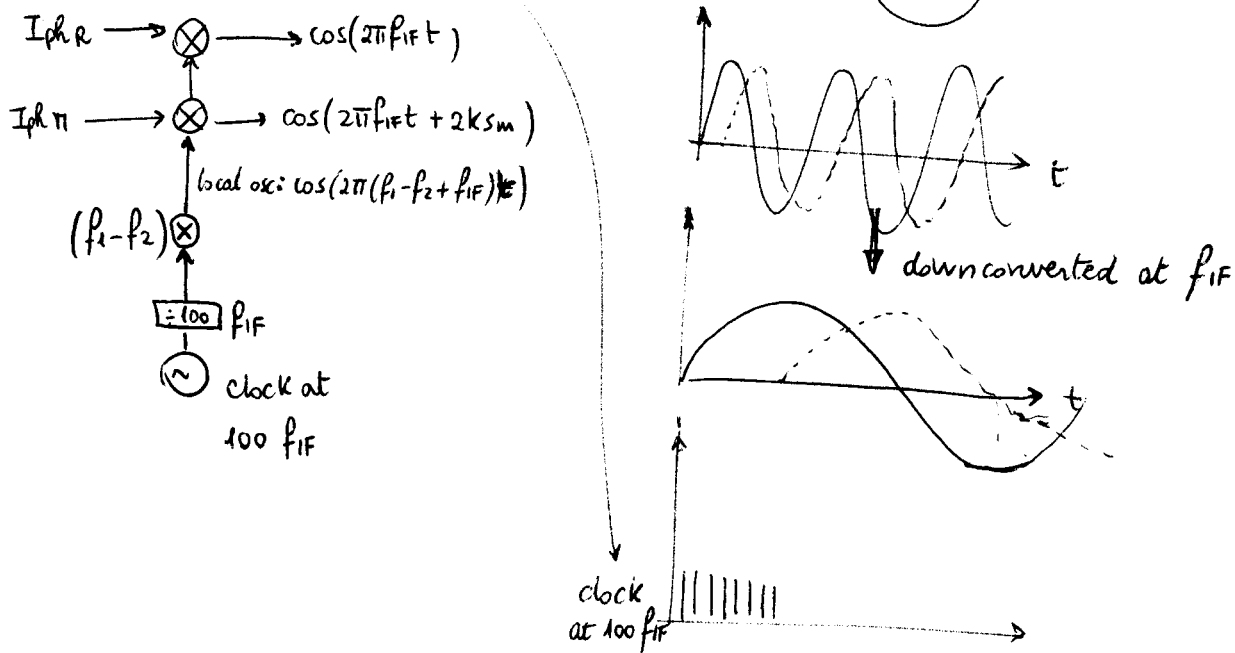 Iph R
cos(2πf1Ft)
Iph M
cos(2πfIFt + 2ksm)
local osc: cos(2π(f1-f2+fIF)t)
(f1-f2)
÷100 fIF
~
clock at
100 fIF
t
downconverted at fIF
t
clock
at 100 fIF